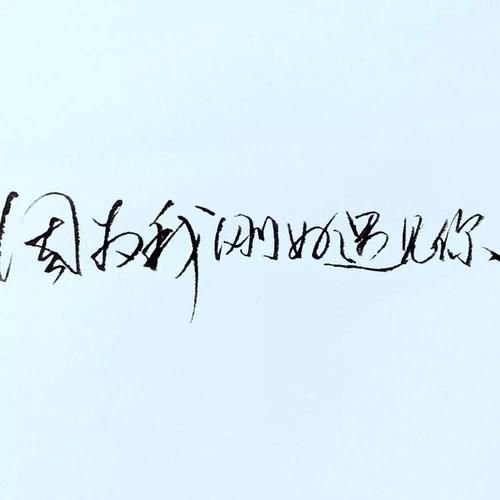 因为我刚好遇见你、